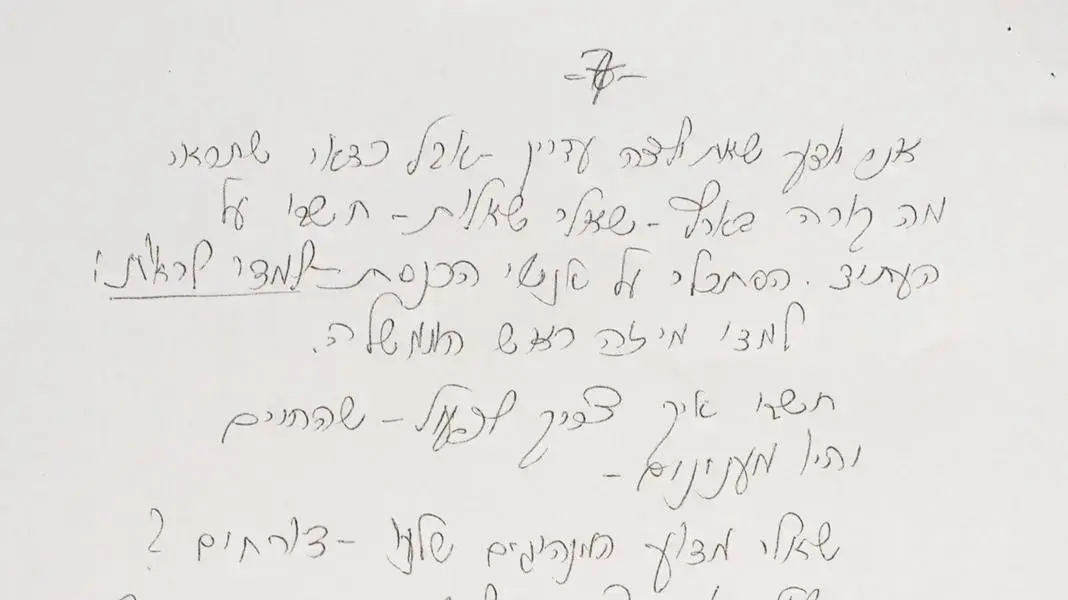 אני יודע שאת ילדה עדיין - אבל כדאי שתראי
מה קורה בארץ - שאלי שאלות - חשבי על
העתיד. הסתכלי על אנשי הכנסת - למדי לראות!
למדי מיזה ראש הממשלה.
חשבי איך צריך לפעול - שהחיים
יהיו מענינים -
שאלי מדוע המנהיגים שלנו - צורחים ?